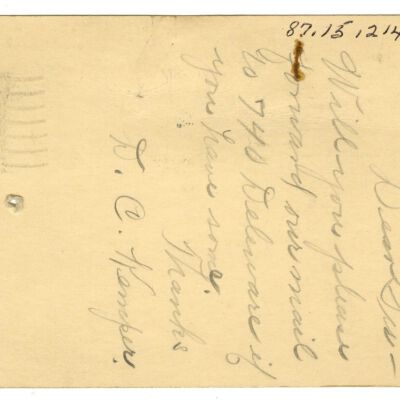 87.15.1214
Dear Sir—
Will you please
forward our mail
to 740 Delaware if
you have some.
Thanks
D. C. Kemper.